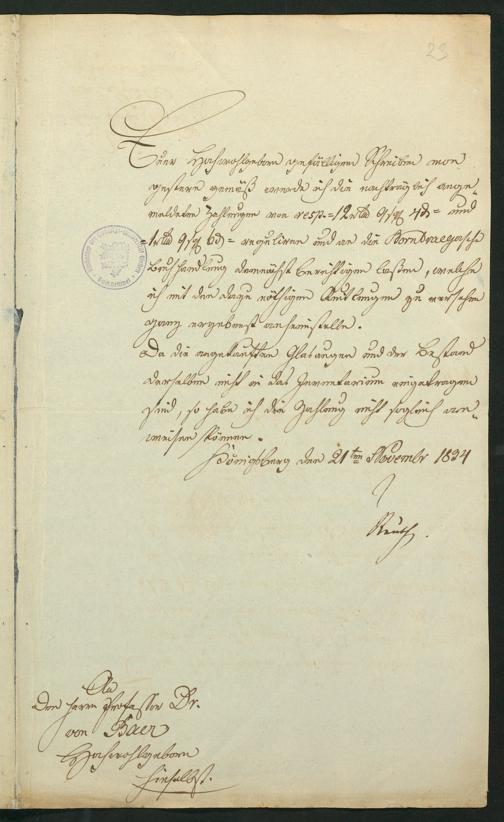 23
Euer Hochwohlgeboren gefälligem Schreiben von
gestern gemäß werde ich die nachträglich ange-
meldeten Zahlungen von resp. 12 und
1 reguliren und an die Bornträgersche
Buchhandlung demnächst berichtigen lassen, welche
ich mit den dazu nöthigen Quittungen zu versehen
ganz ergebenst anheimstelle.
Da die angekauften Glasaugen und der Bestand
derselben nicht in das Inventarium eingetragen
sind, so habe ich die Zahlung nicht sogleich an-
weisen können.
Königsberg den 21ten November 1834
An
Den Herrn Professor Dr.
von Baer
Hochwohlgeboren
hieselbst.